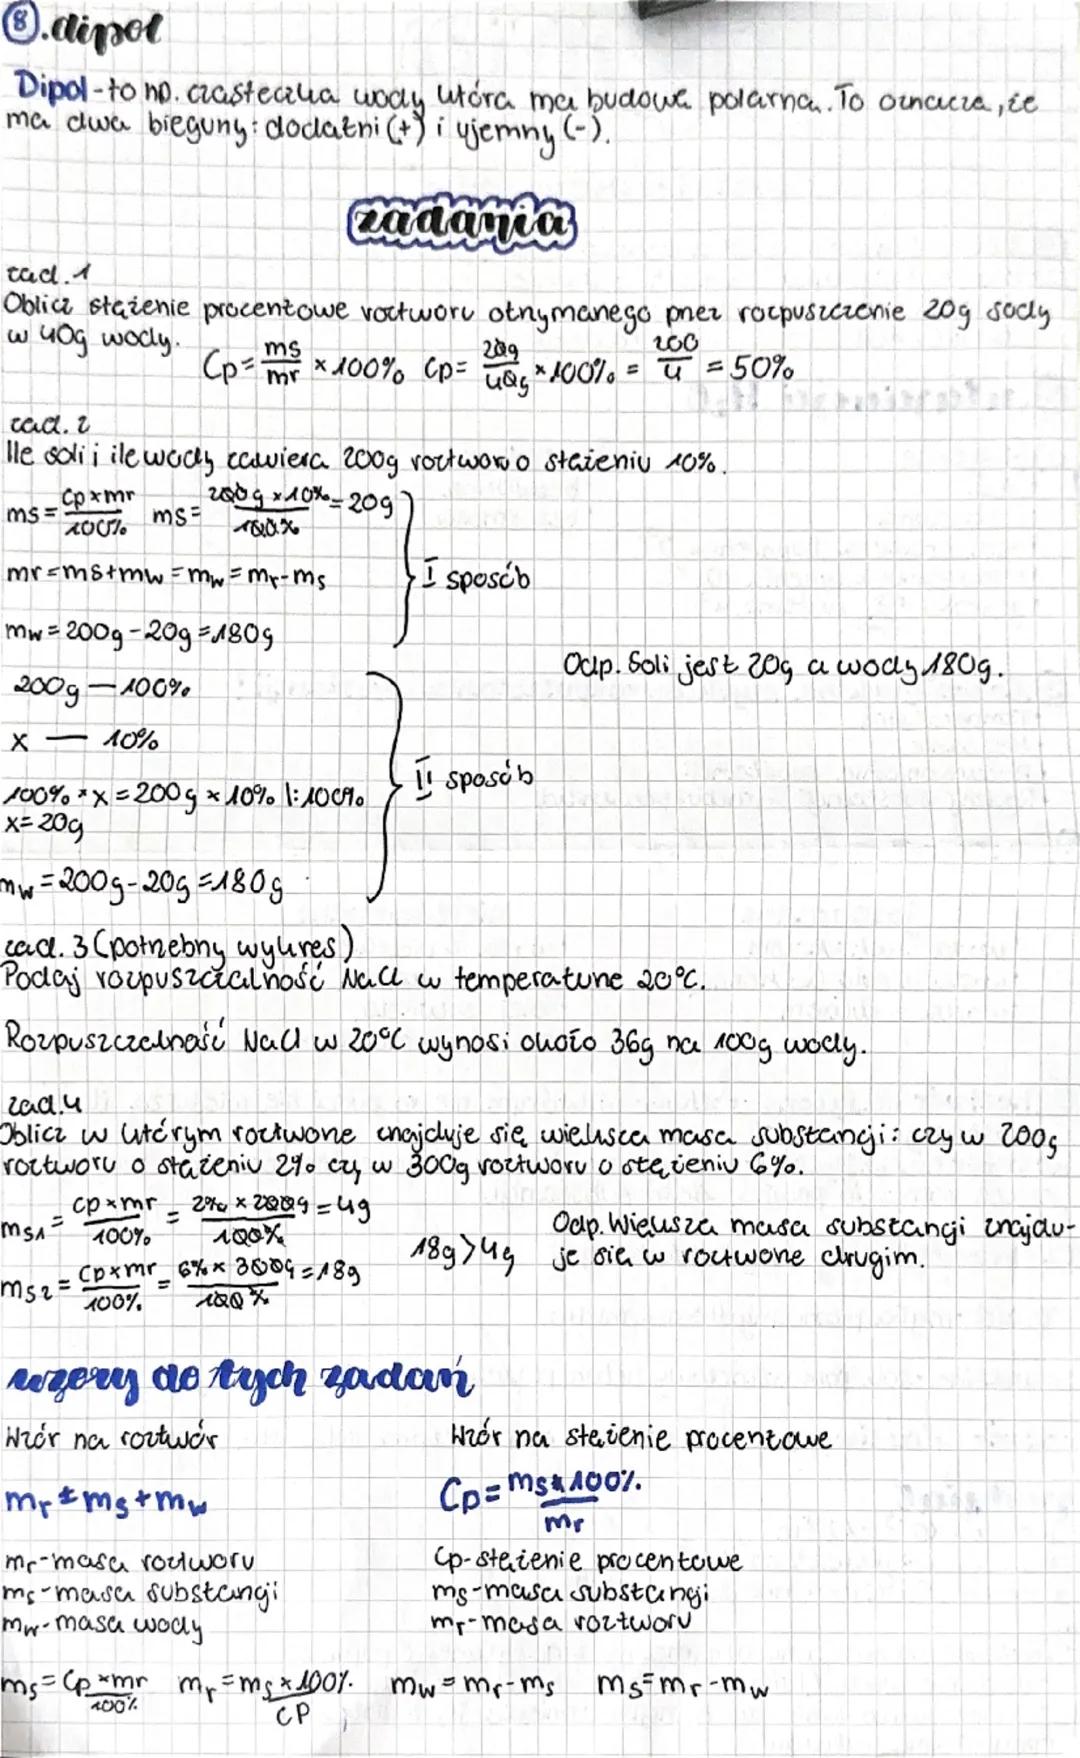 8. dipol
Dipol - to np. cząsteczka wody która ma budowę polarną. To oznacza, że
ma dwa bieguny: dodatni (+) i ujemny (-).
zadania
zad. 1
Oblicz stężenie procentowe roztworu otrzymanego przez rozpuszczenie 20g sody
w 40g wody.
Cp = ms/mr × 100% Cp = 20g/40g × 100% = 200/4 = 50%
zad. 2
Ile soli i ile wody zawiera 200g roztworu o stężeniu 10%.
ms = Cp×mr/100% ms = 200g×10%/100% = 20g
mr = ms + mw = mw = mr - ms
I sposób
mw = 200g - 20g = 180g
Odp. Soli jest 20g a wody 180g.
200g — 100%
x — 10%
100% × x = 200g × 10% |:100%
II sposób
x = 20g
mw = 200g - 20g = 180g
zad. 3 (potrzebny wykres)
Podaj rozpuszczalność NaCl w temperaturze 20°C.
Rozpuszczalność NaCl w 20°C wynosi około 36g na 100g wody.
zad. 4
Oblicz w którym roztworze znajduje się większa masa substancji: czy w 200g
roztworu o stężeniu 2% czy w 300g roztworu o stężeniu 6%.
ms1 = Cp×mr/100% = 2%×200g/100% = 4g
ms2 = Cp×mr/100% = 6%×300g/100% = 18g
18g > 4g
Odp. Większa masa substancji znajdu-
je się w roztworze drugim.
wzory do tych zadań
Wzór na roztwór
Wzór na stężenie procentowe
mr = ms + mw
Cp = ms × 100%/mr
mr - masa roztworu
ms - masa substancji
mw - masa wody
Cp - stężenie procentowe
ms - masa substancji
mr - masa roztworu
ms = Cp×mr/100% mr = ms×100%/CP mw = mr - ms ms = mr - mw